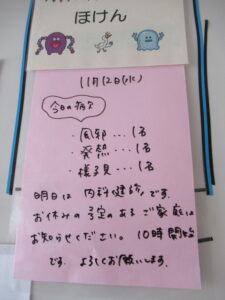 ほけん
11月12日(水)
今日の病欠
・風邪...1名
・発熱...1名
・様子見...1名
明日は 内科健診 です。
お休みの予定のある ご家庭は
お知らせください。10時開始
です。よろしくお願いします。